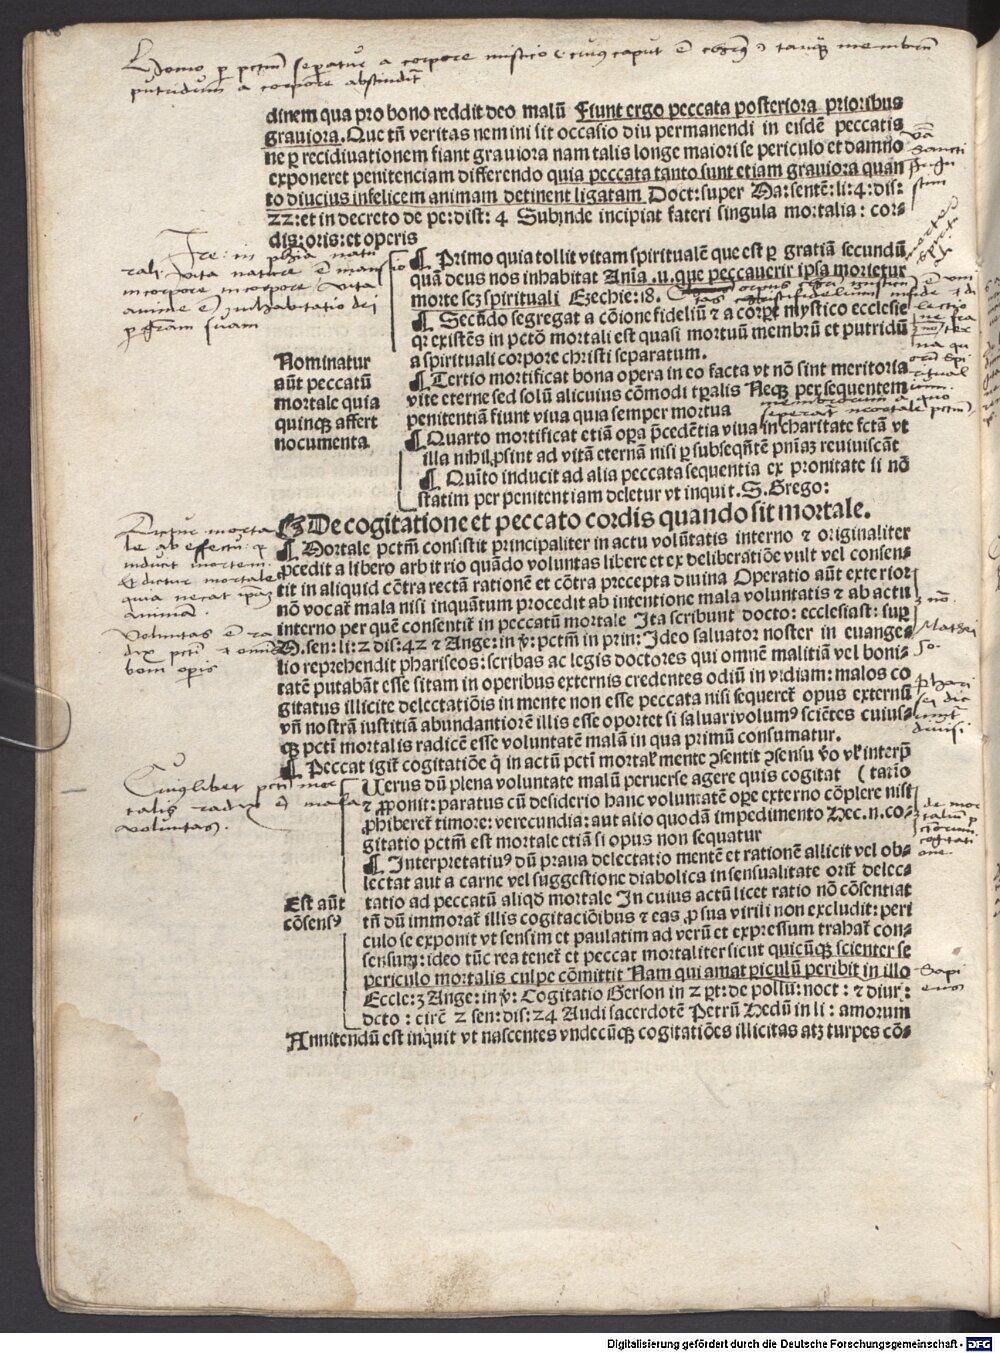 Homo per pctm separatur a corpore mistico cuius caput e membrum
putridum a corpore abscindit
dinem qua pro bono reddit deo malū Fiunt ergo peccata posteriora prioribus
grauiora. Que tñ veritas nemini sit occasio diu permanendi in eisdē peccatis
ne ꝑ recidiuationem fiant grauiora nam talis longe maiori se periculo et damno
exponeret penitenciam differendo quia peccata tanto sunt etiam grauiora quan
to diucius infelicem animam detinent ligatam Doct: super Ma: sentē: li: 4: dis:
22: et in decreto de pe: dist: 4 Subinde incipiat fateri singula mortalia: cor⸗
dis: oris: et operis
¶ Primo quia tollit vitam spiritualē que est ꝑ gratiā secundū
quā deus nos inhabitat Aniā .u. que peccauerit ipsa morietur
morte scꝫ spirituali Ezechie: 18.
¶ Secūdo segregat a cōione fideliū ⁊ a corꝑe mystico ecclesie
qr existēs in pctō mortali est quasi mortuū membrū et putridū
a spirituali corpore christi separatum.
Nominatur
aūt peccatū
mortale quia
quinqꝫ affert
nocumenta
¶ Tertio mortificat bona opera in eo facta vt nō sint meritoria
vite eterne sed solū alicuius cōmodi tꝑalis Neqꝫ per sequentem
penitentiā fiunt viua quia semper mortua
¶ Quarto mortificat etiā oꝑa p̄cedētia viua in charitate fctā vt
illa nihil ꝓsint ad vitā eternā nisi ꝑ subseqñtē pniaꝫ reuiuiscāt
¶ Quīto inducit ad alia peccata sequentia ex pronitate si nō
statim per penitentiam deletur vt inquit. S. Grego:
De cogitatione et peccato cordis quando sit mortale.
¶ Mortale pctm consistit principaliter in actu volūtatis interno ⁊ originaliter
ꝓcedit a libero arbitrio quādo voluntas libere et ex deliberatiōe vult vel consen⸗
tit in aliquid cōtra rectā rationē et cōtra precepta diuina Operatio aūt exterior
nō vocat mala nisi inquātum procedit ab intentione mala voluntatis ⁊ ab actu
interno per quē consentit in peccatū mortale Ita scribunt docto: ecclesiast: suꝑ
M. sen: li: 2 dis: 42 ⁊ Ange: in v̄: pctm in prin: Ideo saluator noster in euange⸗
lio reprehendit phariseos: scribas ac legis doctores qui omnē malitiā vel boni⸗
tatē putabāt esse sitam in operibus externis credentes odiū inuidiam: malos co
gitatus illicite delectatiōis in mente non esse peccata nisi sequeret opus externū
vñ nostrā iustitiā abundantiorē illis esse oportet si saluari volumꝰ sciētes cuius⸗
qꝫ pcti mortalis radicē esse voluntatē malā in qua primū consumatur.
¶ Peccat igit cogitatiōe q̄ in actū pcti mortal mente ꝯsentit ꝯsensu v̄o vl interp̄
Uerus dū plena voluntate malū peruerse agere quis cogitat ( tatio
⁊ ꝓponit: paratus cū desiderio hanc voluntatē oꝑe externo cōplere nisi
ꝓhiberet timore: verecundia: aut alio quodā impedimento Hec .n. co⸗
gitatio pctm est mortale etiā si opus non sequatur
¶ Interpretatiuꝰ dū praua delectatio mentē et rationē allicit vel ob⸗
lectat aut a carne vel suggestione diabolica in sensualitate orit delec⸗
Est aūt
cōsensꝰ
tatio ad peccatū aliqd mortale In cuius actū licet ratio nō cōsentiat
tñ dū immorat illis cogitaciōibus ⁊ eas ꝓ sua virili non excludit: peri
culo se exponit vt sensim et paulatim ad verū et expressum trahat con⸗
sensum: ideo tūc rea tenet et peccat mortaliter sicut quicūqꝫ scienter se
periculo mortalis culpe cōmittit Nam qui amat ꝑiculū peribit in illo
Eccle: 3 Ange: in v̄: Cogitatio Gerson in 2 ꝑt: de pollu: noct: ⁊ diur:
dcto: circ 2 sen: dis: 24 Audi sacerdotē Petrū Hedū in li: amorum
Annitendū est inquit vt nascentes vndecūqꝫ cogitatiōes illicitas atqꝫ turpes cō⸗
Dicitur morta
le ab effectu q
inducit mortem
Et dicitur mortale
quia necat ipam
animam.
voluntas e ra
dix pcti
boni operis
Cuiuslibet pcti mor
talis radix e mala
voluntas.
de mor
cogitati
one.
Sapi
ens
Digitalisierung gefördert durch die Deutsche Forschungsgemeinschaft - DFG